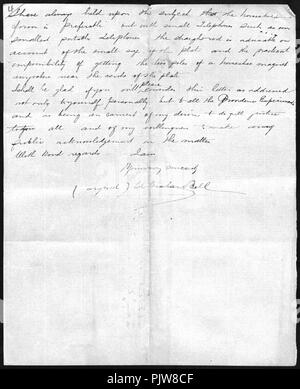 I have always held upon this subject that the horseshoe
form is preferable but with small Telephones such as our
smallest portable Telephone the straight rod is admirable on
account of the small size of the plate and the practical
impossibility of getting the two poles of a horseshoe magnet
anywhere near the centre of the plate
Shall be glad if you will please consider this letter as addressed
not only to yourself personally but to all the Providence Experimenters
and as being an earnest of my desire to do full justice
to you all and of my willingness to make any
public acknowledgement in the matter
With kind regards I am
Yours sincerely
(signed) A. Graham Bell
alamy
Image ID: PJW8CF
www.alamy.com